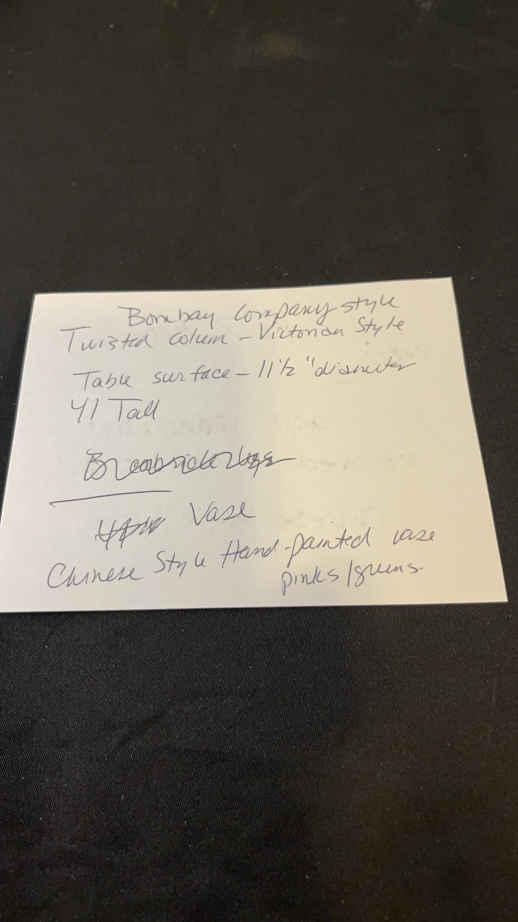 Bombay Company style
Twisted Column - Victorian Style
Table surface - 11 1/2" diameter
41 Tall
Vase
Chinese Style Hand-painted vase
pinks/greens.